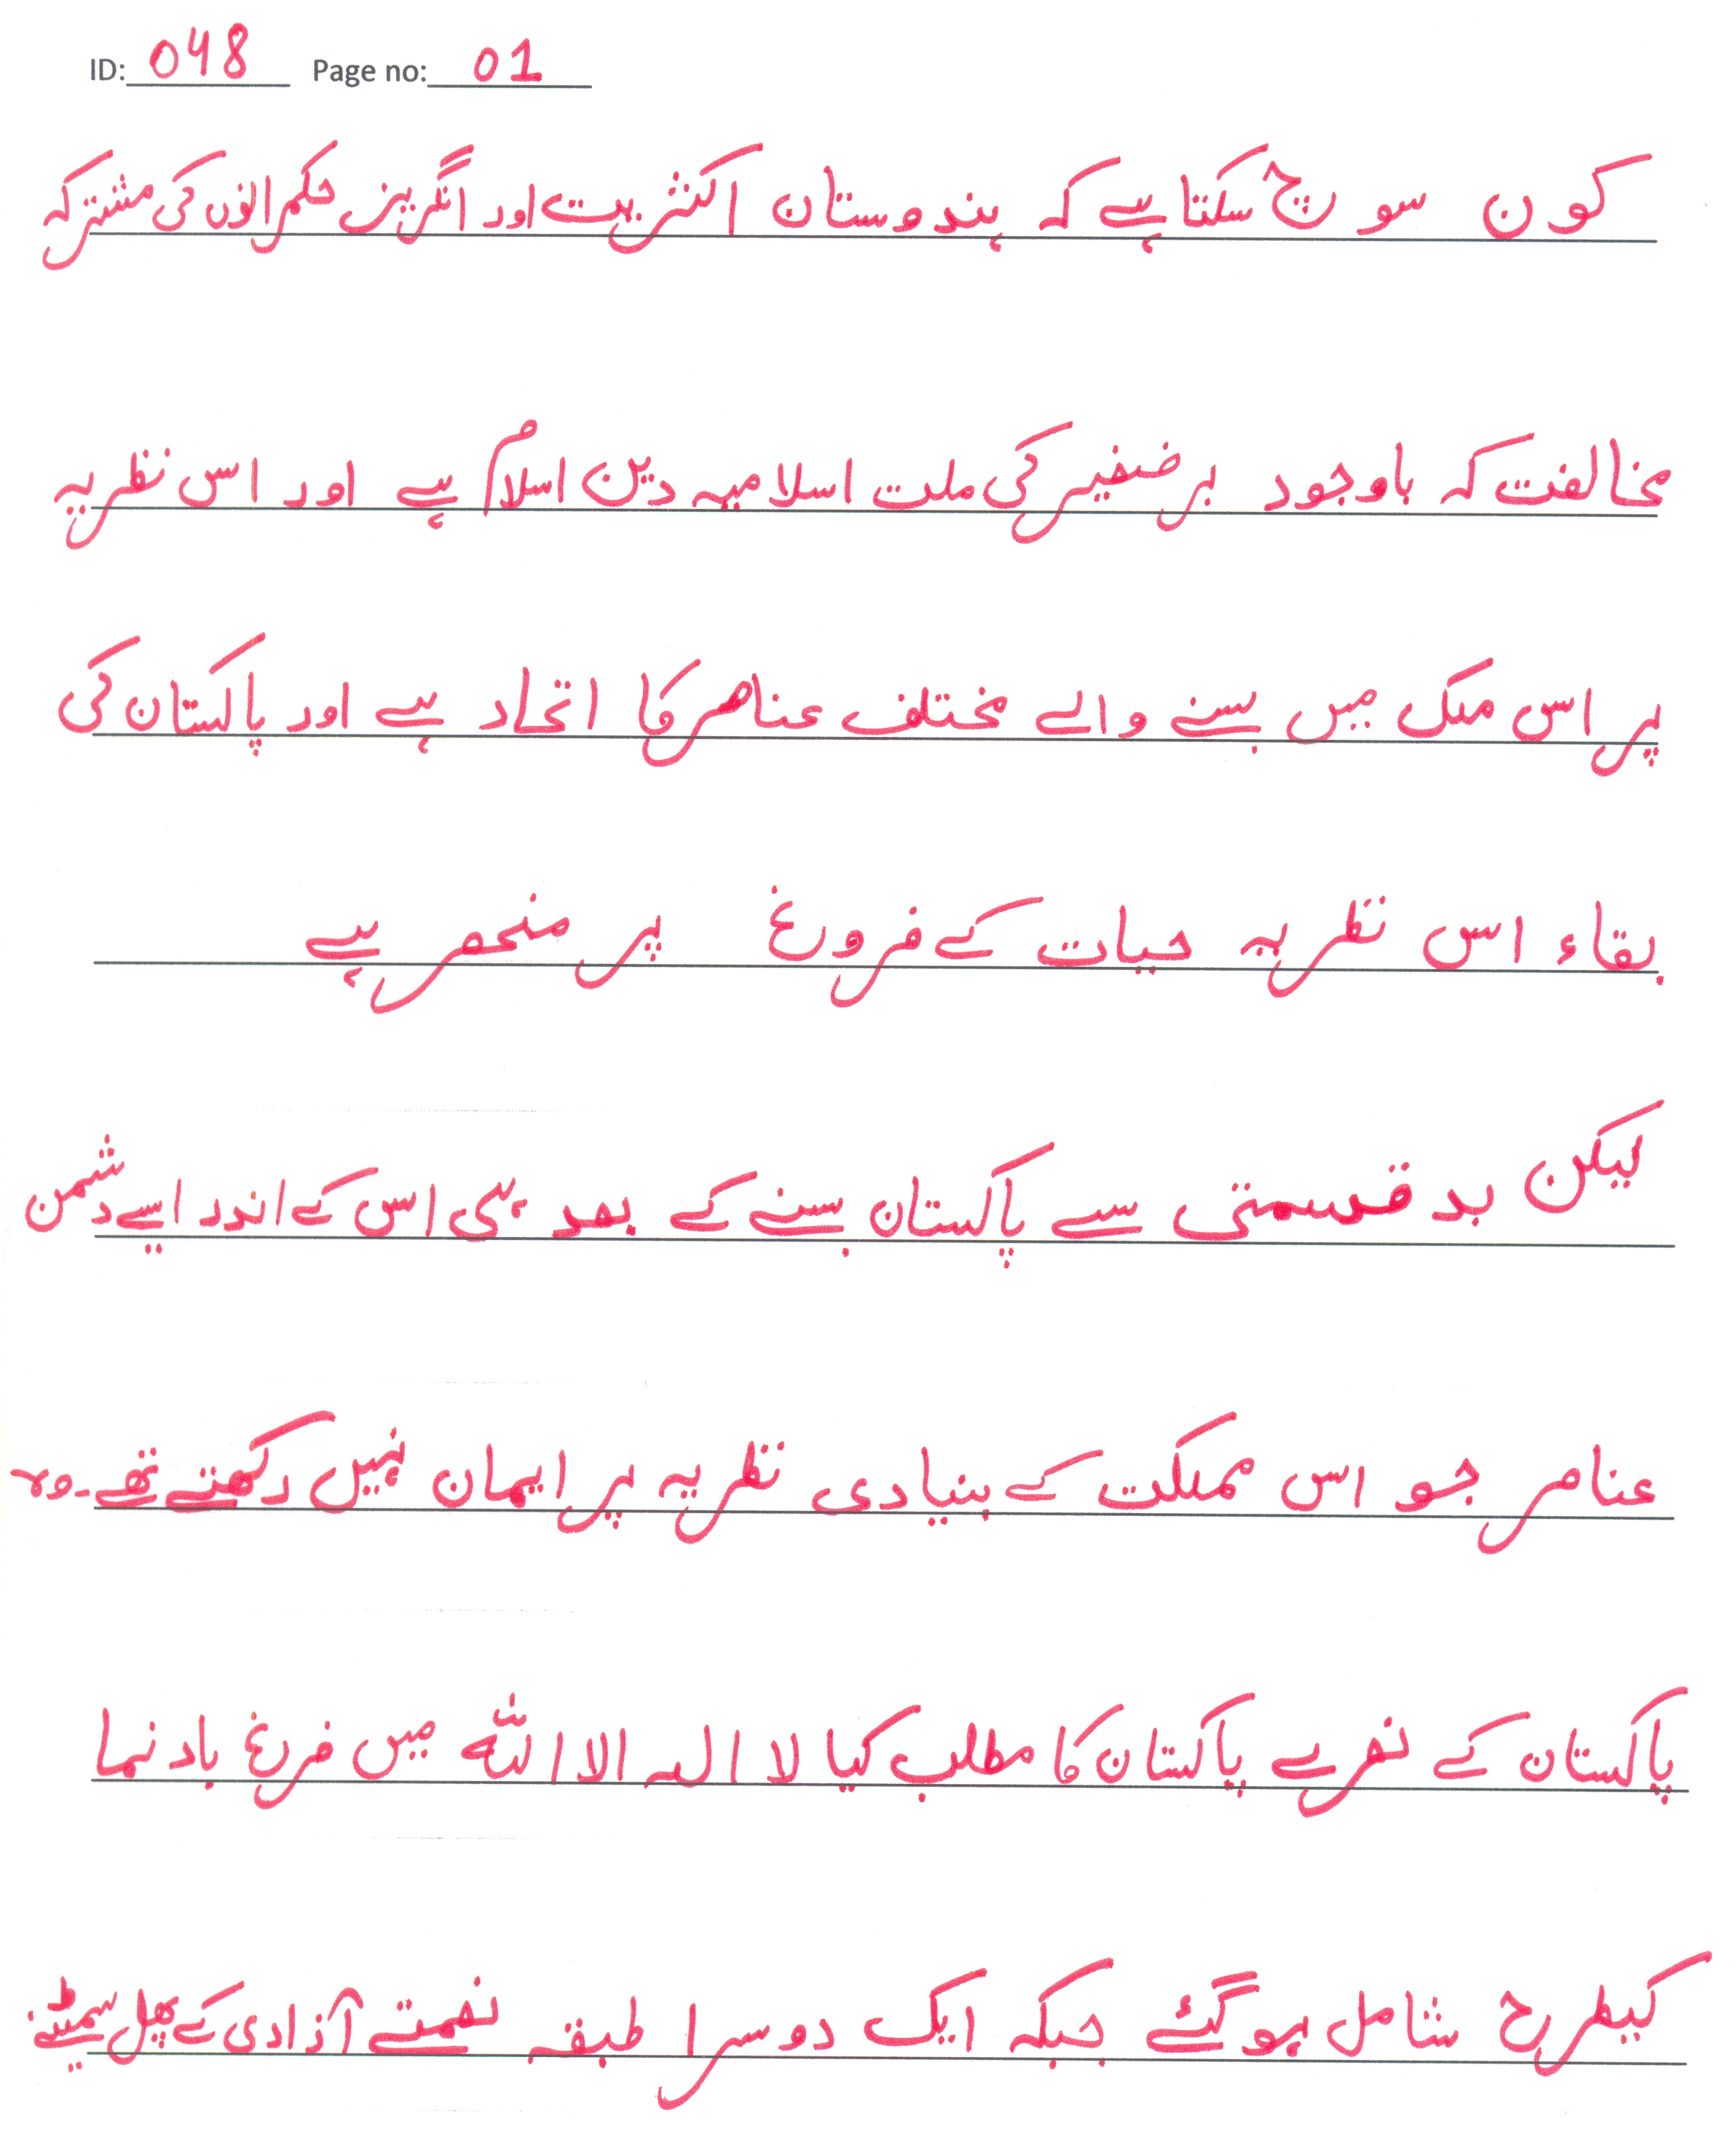 ID: 048 Page no: 01
کون سوچ سکتا ہے کہ ہندوستان اکثریت اور انگریز حکمرانوں کی مشترکہ
مخالفت کہ باوجود برضغیر کی ملت اسلامیہ دین اسلام ہے اور اس نظریہ
پر اس ملک میں بسنے والے مختلف عناصر کا اتحاد ہے اور پاکستان کی
بقاء اس نظریہ حیات کے فروغ پر منحصر ہے
لیکن بد قسمتی سے پاکستان بننے کے بعد ہی اس کے اندر ایسے دشمن
عناصر جو اس مملکت کے بنیادی نظریہ پر ایمان نہیں رکھتے تھے۔ وہ
پاکستان کے نعرے پاکستان کا مطلب کیا لا الہ الا اللہ میں مرغ باد نما
کیطرح شامل ہو گئے جبکہ ایک دوسرا طبقہ نعمتے آزادی کے پھل سمیٹنے